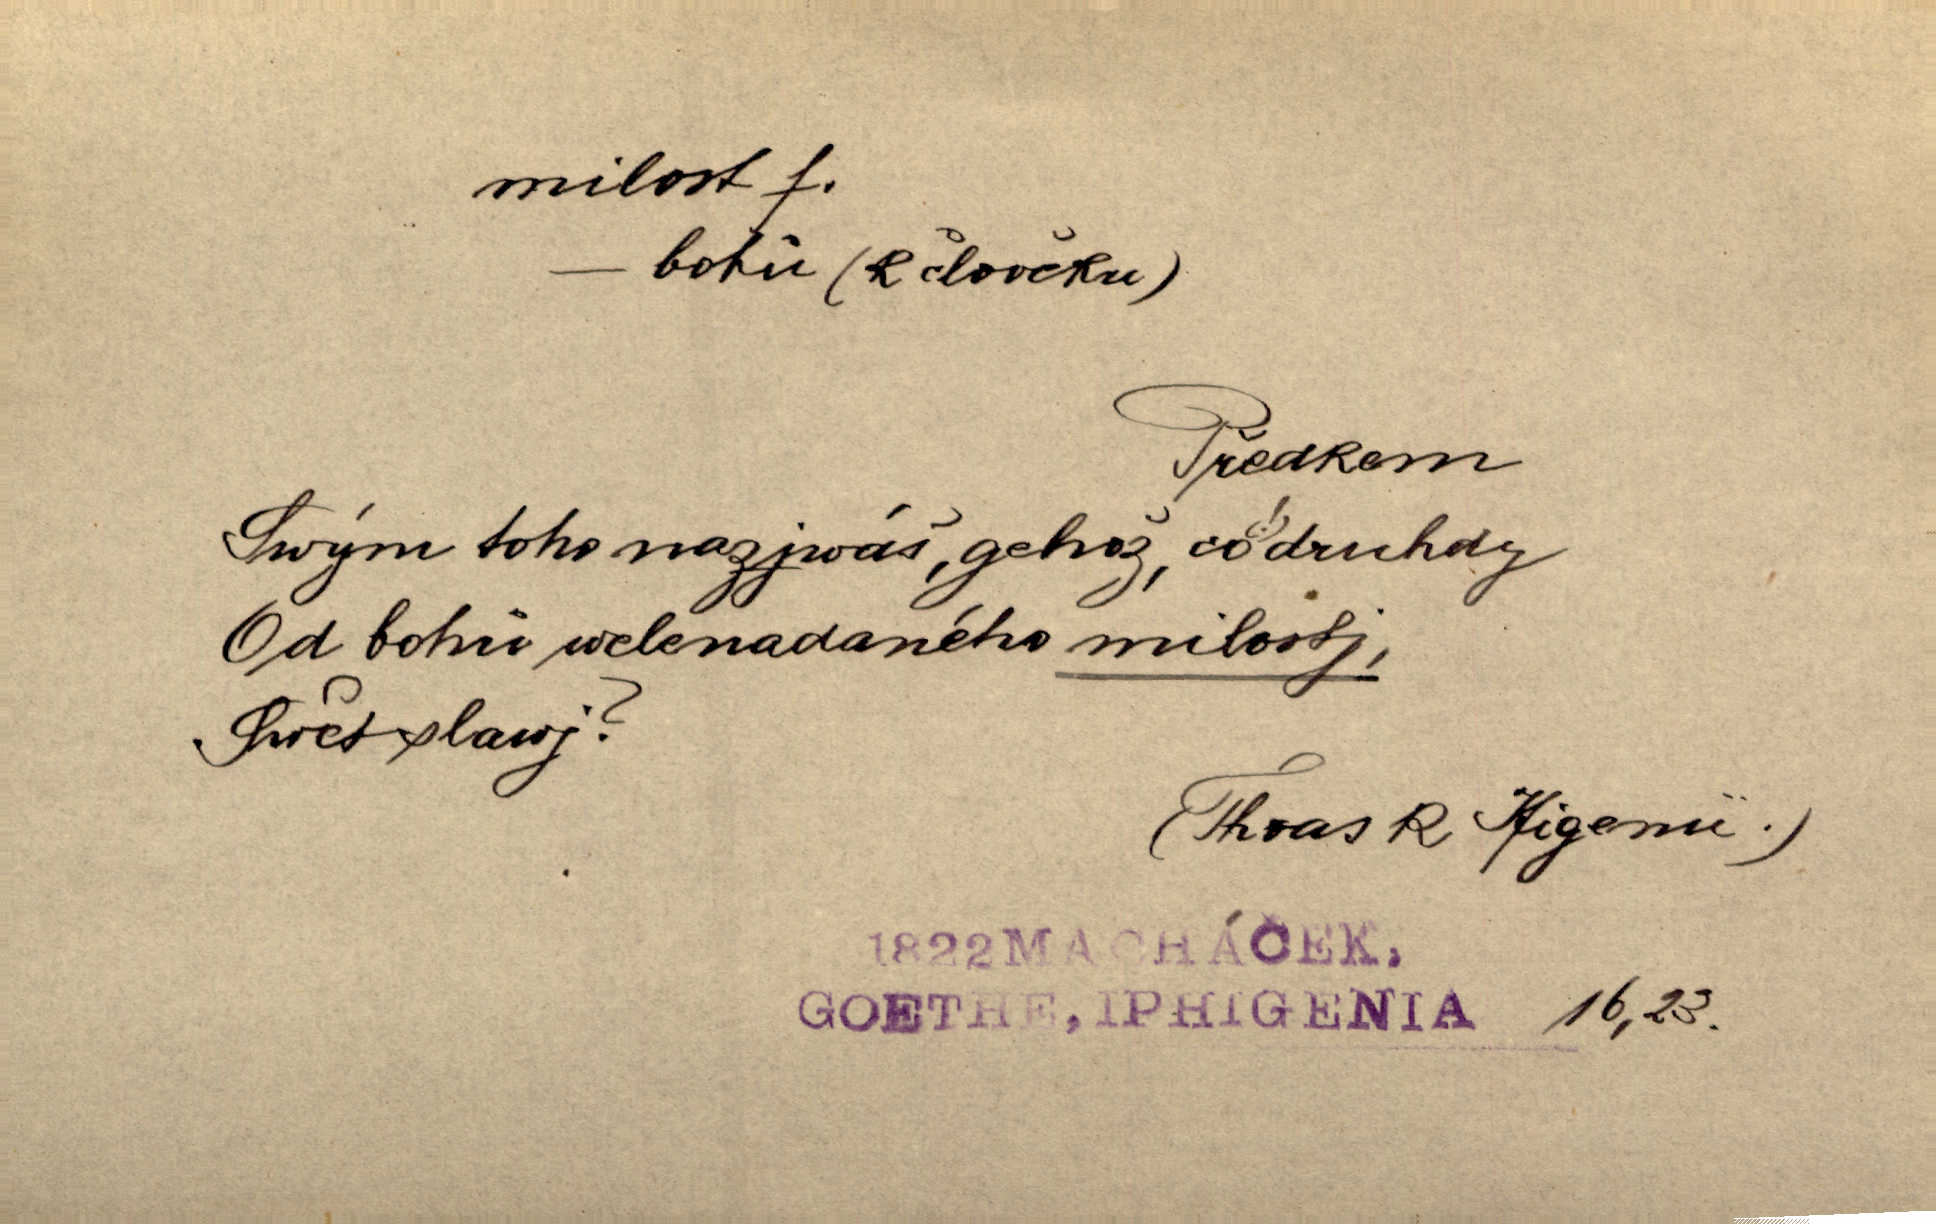 milost f.
— bohů (k člověku)
Předkem
Swým toho nazjwáš, gehož, co (!) druhdy
Od bohů welenadaného milostj,
Swět slawj?
(Thoas k Ifigenii.)
1822 MACHÁČEK,
GOETHE, IPHIGENIA 16,23.